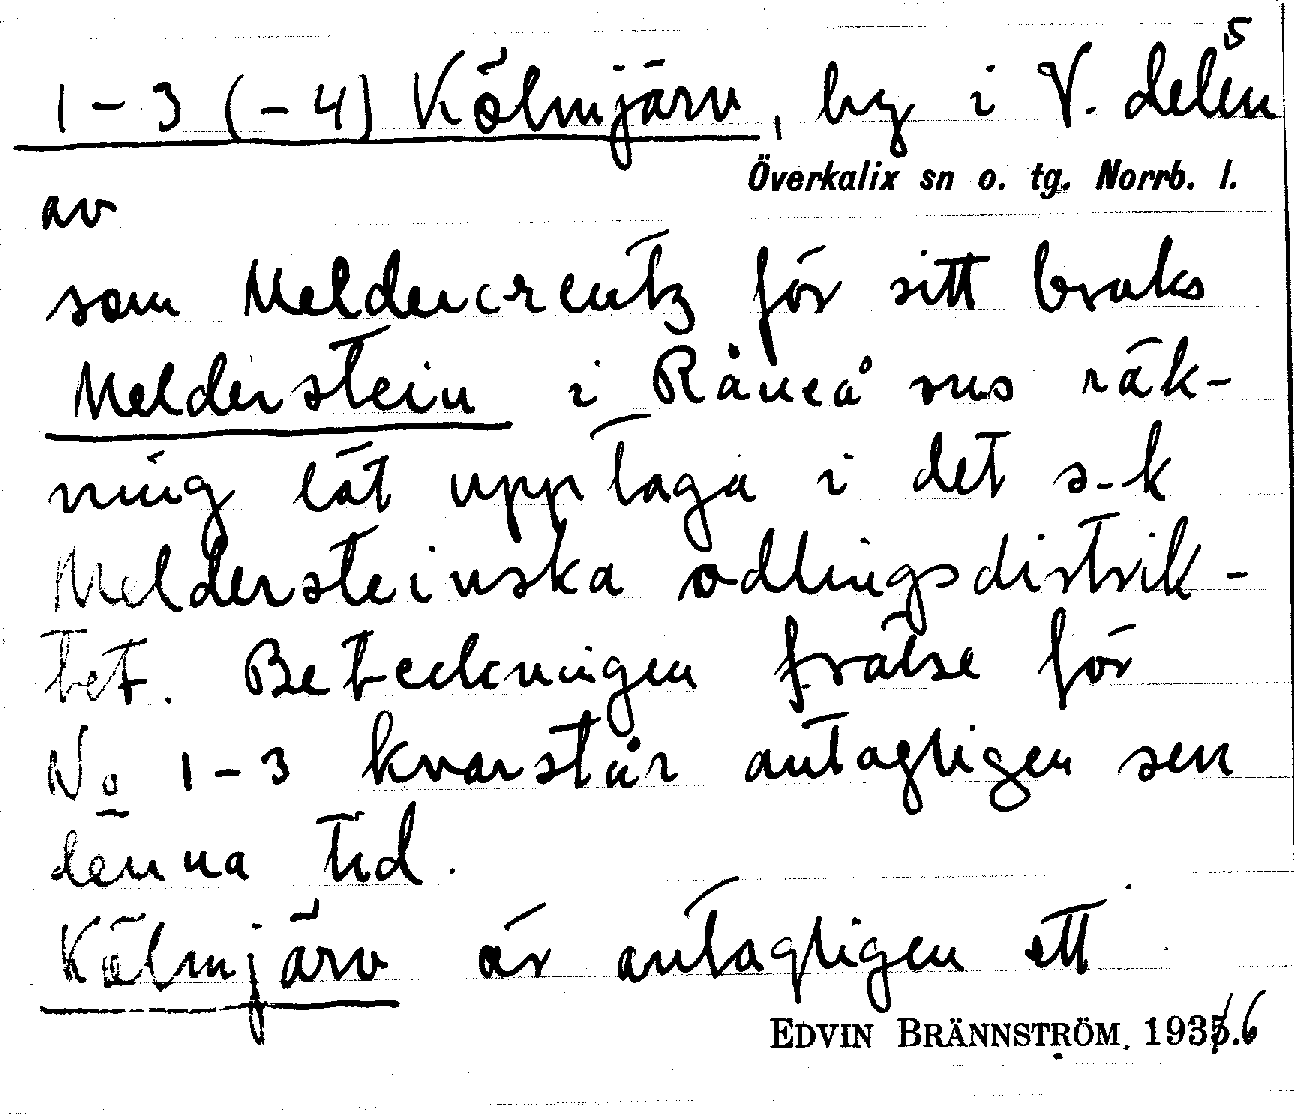 5
1-3 (-4) Kölmjärv, by i V. delen
Överkalix sn o. tg. Norrb. l.
av
som Meldercreutz för sitt bruks
Melderstein i Råneå sns räk-
ning lät upptaga i det s.k
Meldersteinska odlingsdistrik-
tet. Beteckningen frälse för
No 1-3 kvarstår antagligen sen
denna tid.
Kölmjärv är antagligen ett
EDVIN BRÄNNSTRÖM. 1935.6